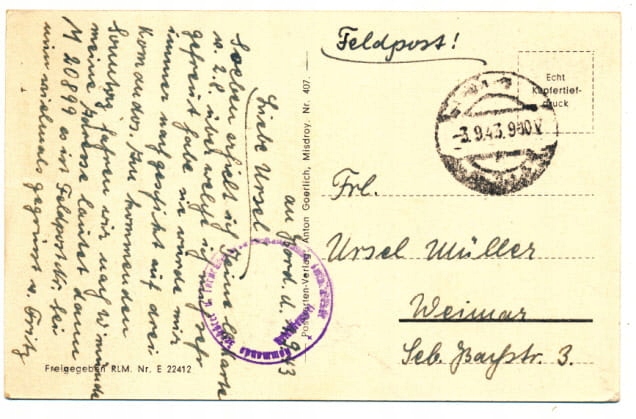 Feldpost!
Echt
Kupfertief-
druck
-3.9.43.9-10V
Frl.
Ursel Müller
Weimar
Seb. Bachstr. 3.
Postkarten-Verlag Anton Goerlich, Misdroy, Nr. 407.
Freigegeben RLM. Nr. E 22412
an Bord. d.
Liebe Ursel
Soeben erhielt ich Deine
v. 2.8. über welche ich mich sehr
gefreut habe sie wurde mir
immer nachgeschickt auf drei
Komandos. Am kommenden
Sonntag fahren wir nach
meine Adresse lautet dann
M 20899 es ist Feldpostnr. sei
nun vielmals gegrüsst v. Fritz
Kommando